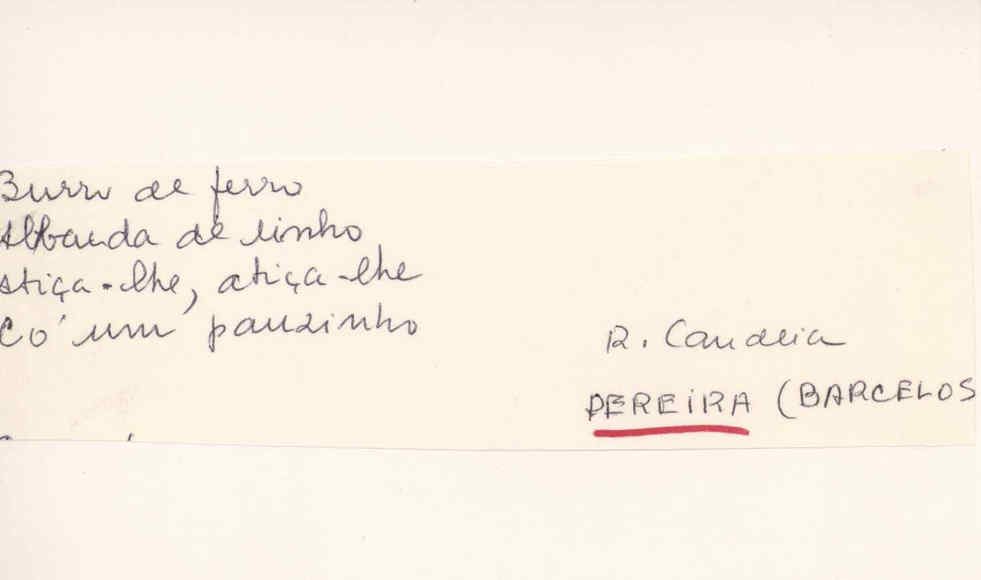 Burro de ferro
Albarda de linho
Atiça-lhe, atiça-lhe
Có um pauzinho
R. Candeia
PEREIRA (BARCELOS